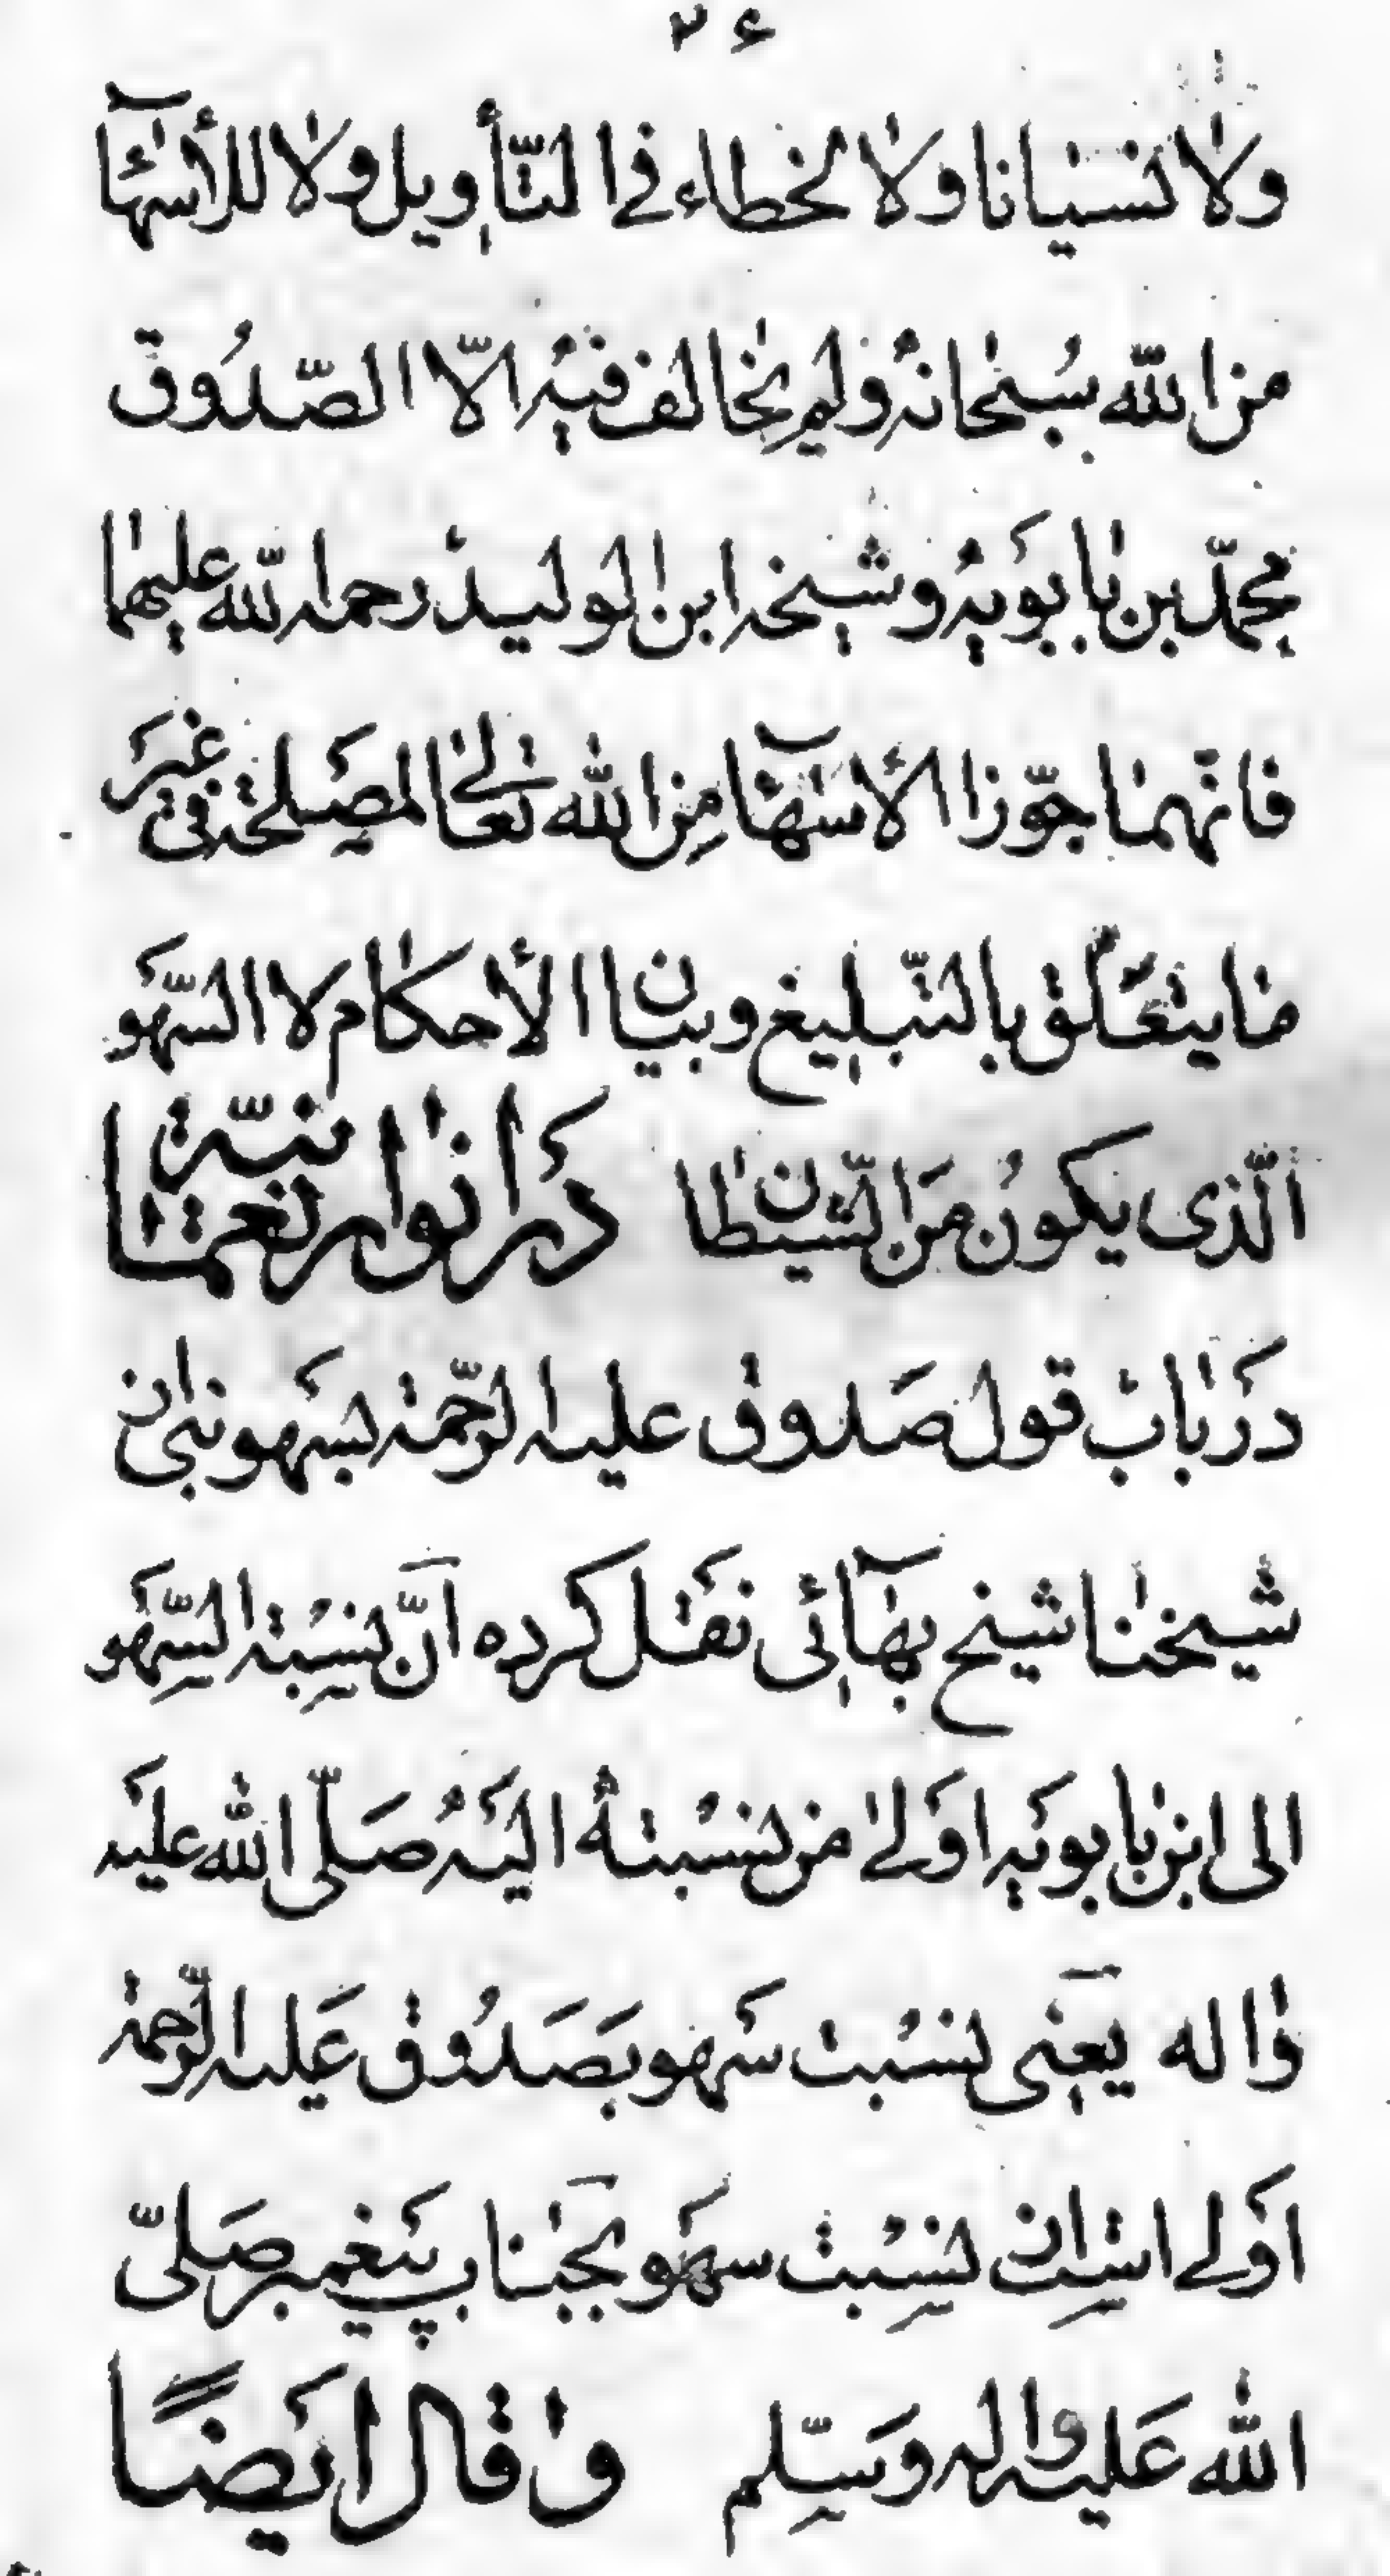 ۲۶
ولا نسیانا ولا لخطاء فی التّأویل ولا للأسهآء
من الله سبحانه ولم یخالف فیه الّا الصّدوق
محمّد بن بابویه وشیخه ابن الولید رحمه الله علیهما
فانّهما جوّزا الأسهآء من الله تعالی لمصلحة فی غیر
ما یتعلّق بالتّبلیغ وبیان الأحکام لا السّهو
الّذی یکون من الشّیطان در انوار نعمانیّة
در باب قول صدوق علیه الرّحمة بسهو نبی از
شیخنا شیخ بهآئی نقل کرده انّ نسبة السّهو
الی ابن بابویه اولی من نسبته الیه صلّی الله علیه
واله یعنی نسبت سهو بصدوق علیه الرّحمة
اولی است از نسبت سهو بجناب پیغمبر صلّی
الله علیه واله وسلّم وقال ایضًا